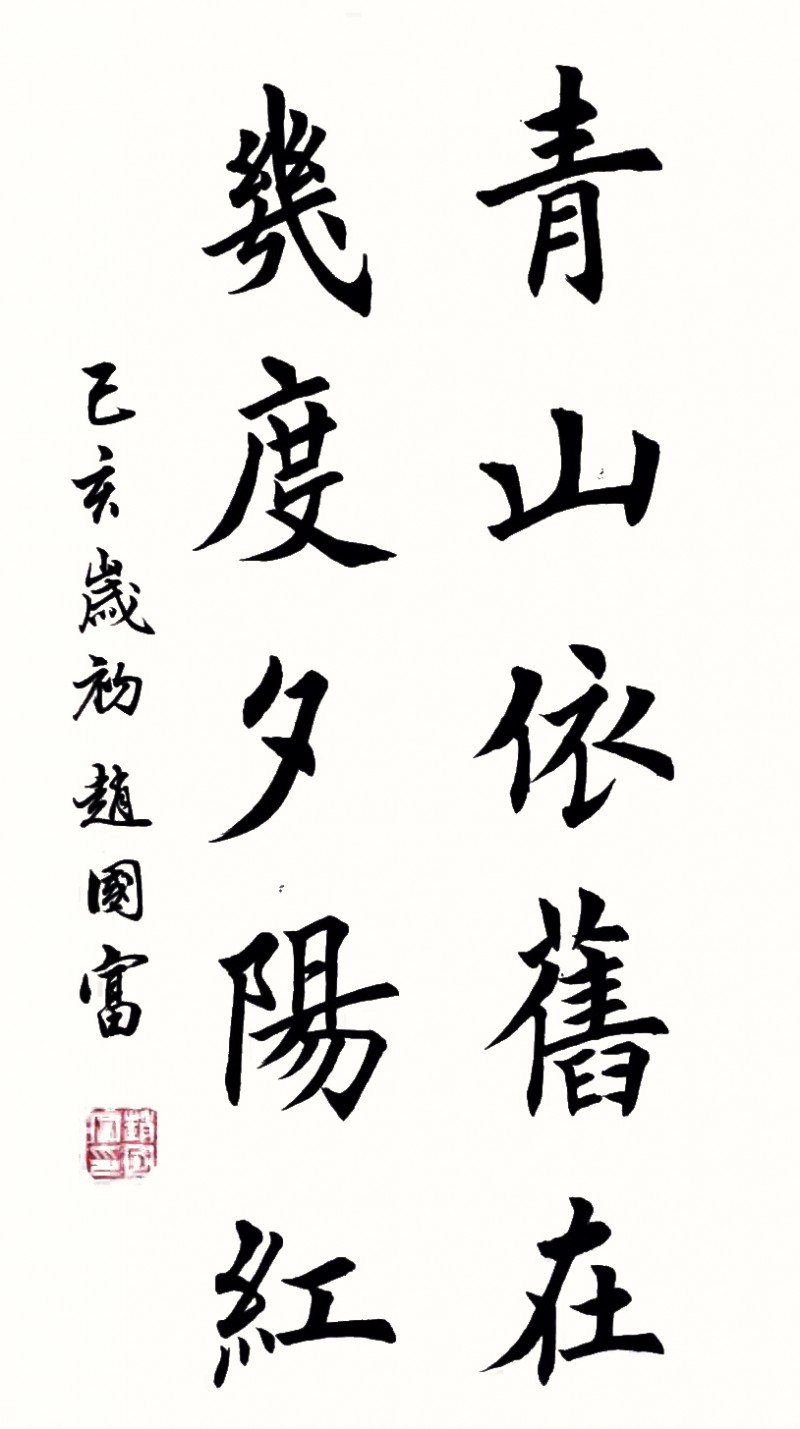 青山依舊在
幾度夕陽紅
己亥歲初趙國富